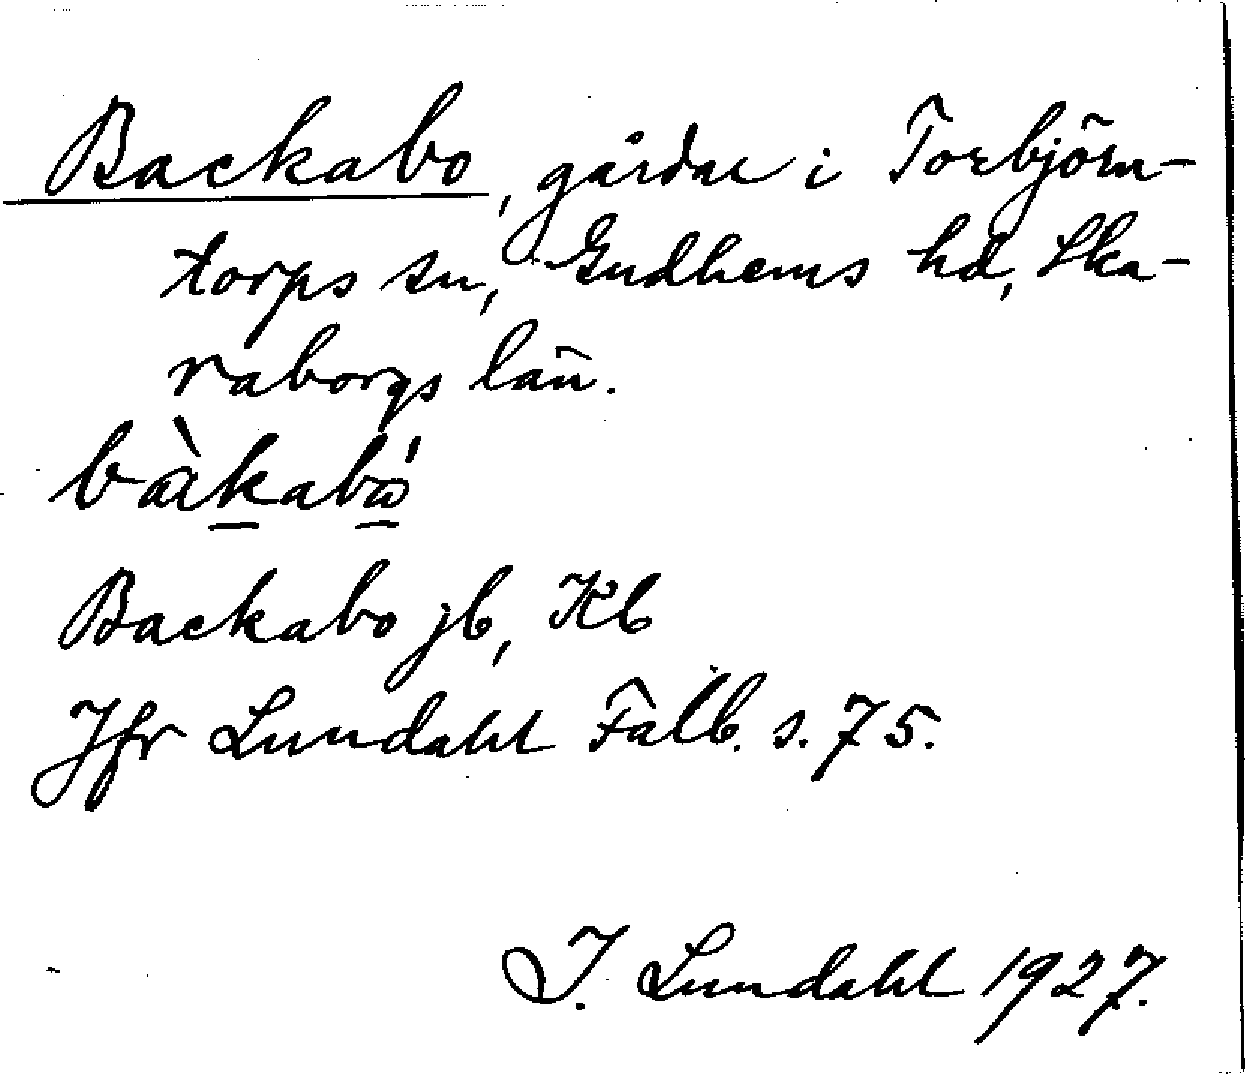 Backabo, gårdar i Torbjörn-
torps sn, Gudhems hd, Ska-
raborgs län.
bàkabǻ
Backabo jb, Kb
Jfr Lundahl Falb. s. 75.
I. Lundahl 1927.